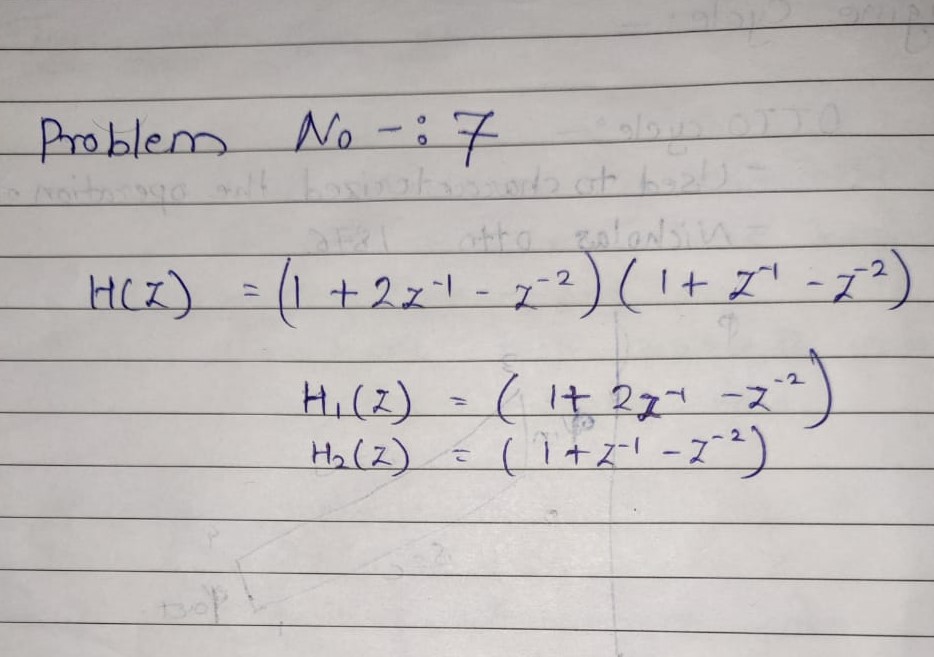 Problem No -: 7
H(Z) = (1 + 2z⁻¹ - z⁻²) (1 + z⁻¹ - z⁻²)
H₁(Z) = (1 + 2z⁻¹ - z⁻²)
H₂(Z) = (1 + z⁻¹ - z⁻²)